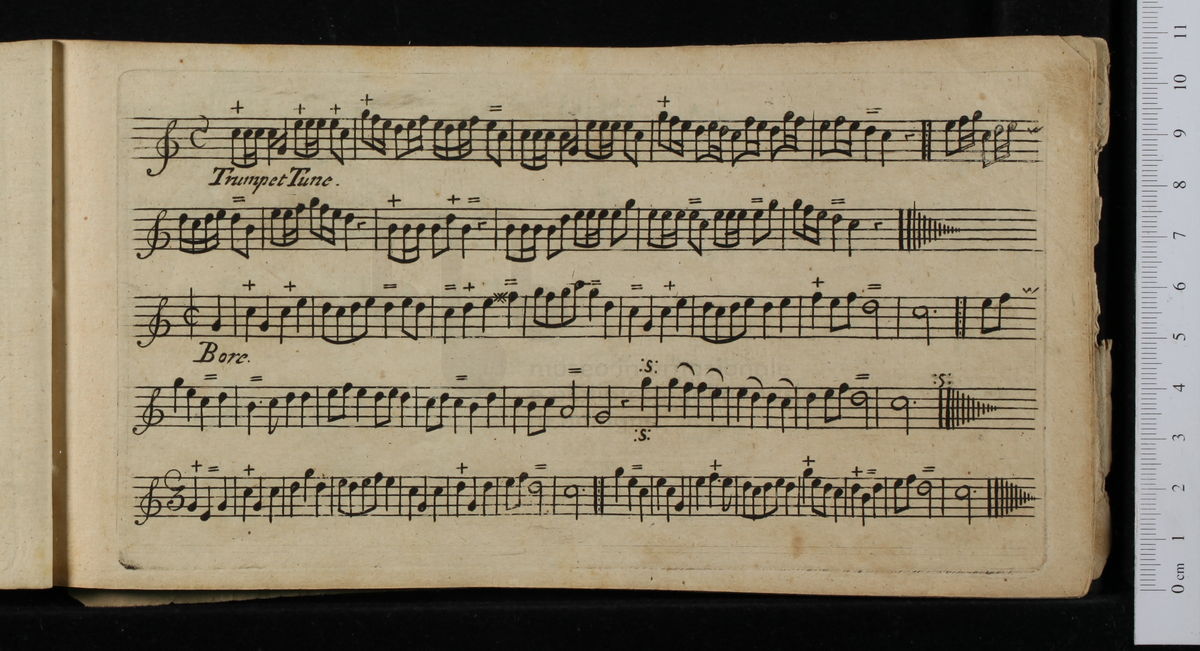 Trumpet Tune.
Bore.
:S:
:S:
:S:
3
11
10
9
8
7
6
5
4
3
2
1
0 cm